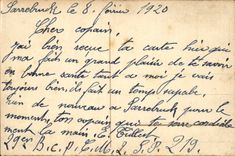 Sarrebruck le 8. février 1920
Chers copain,
j'ai bien recue ta carte hier qui
ma fait un grand plaisir de te savoir
en bonne santé tout a moi je vais
toujours bien, ils fait un temps
Rien de nouveau a Sarrebruck pour le
moments, ton copain que te serre cordiale
ment la main. E.
29em B.C.P. C.M. 2. S.P. 219.